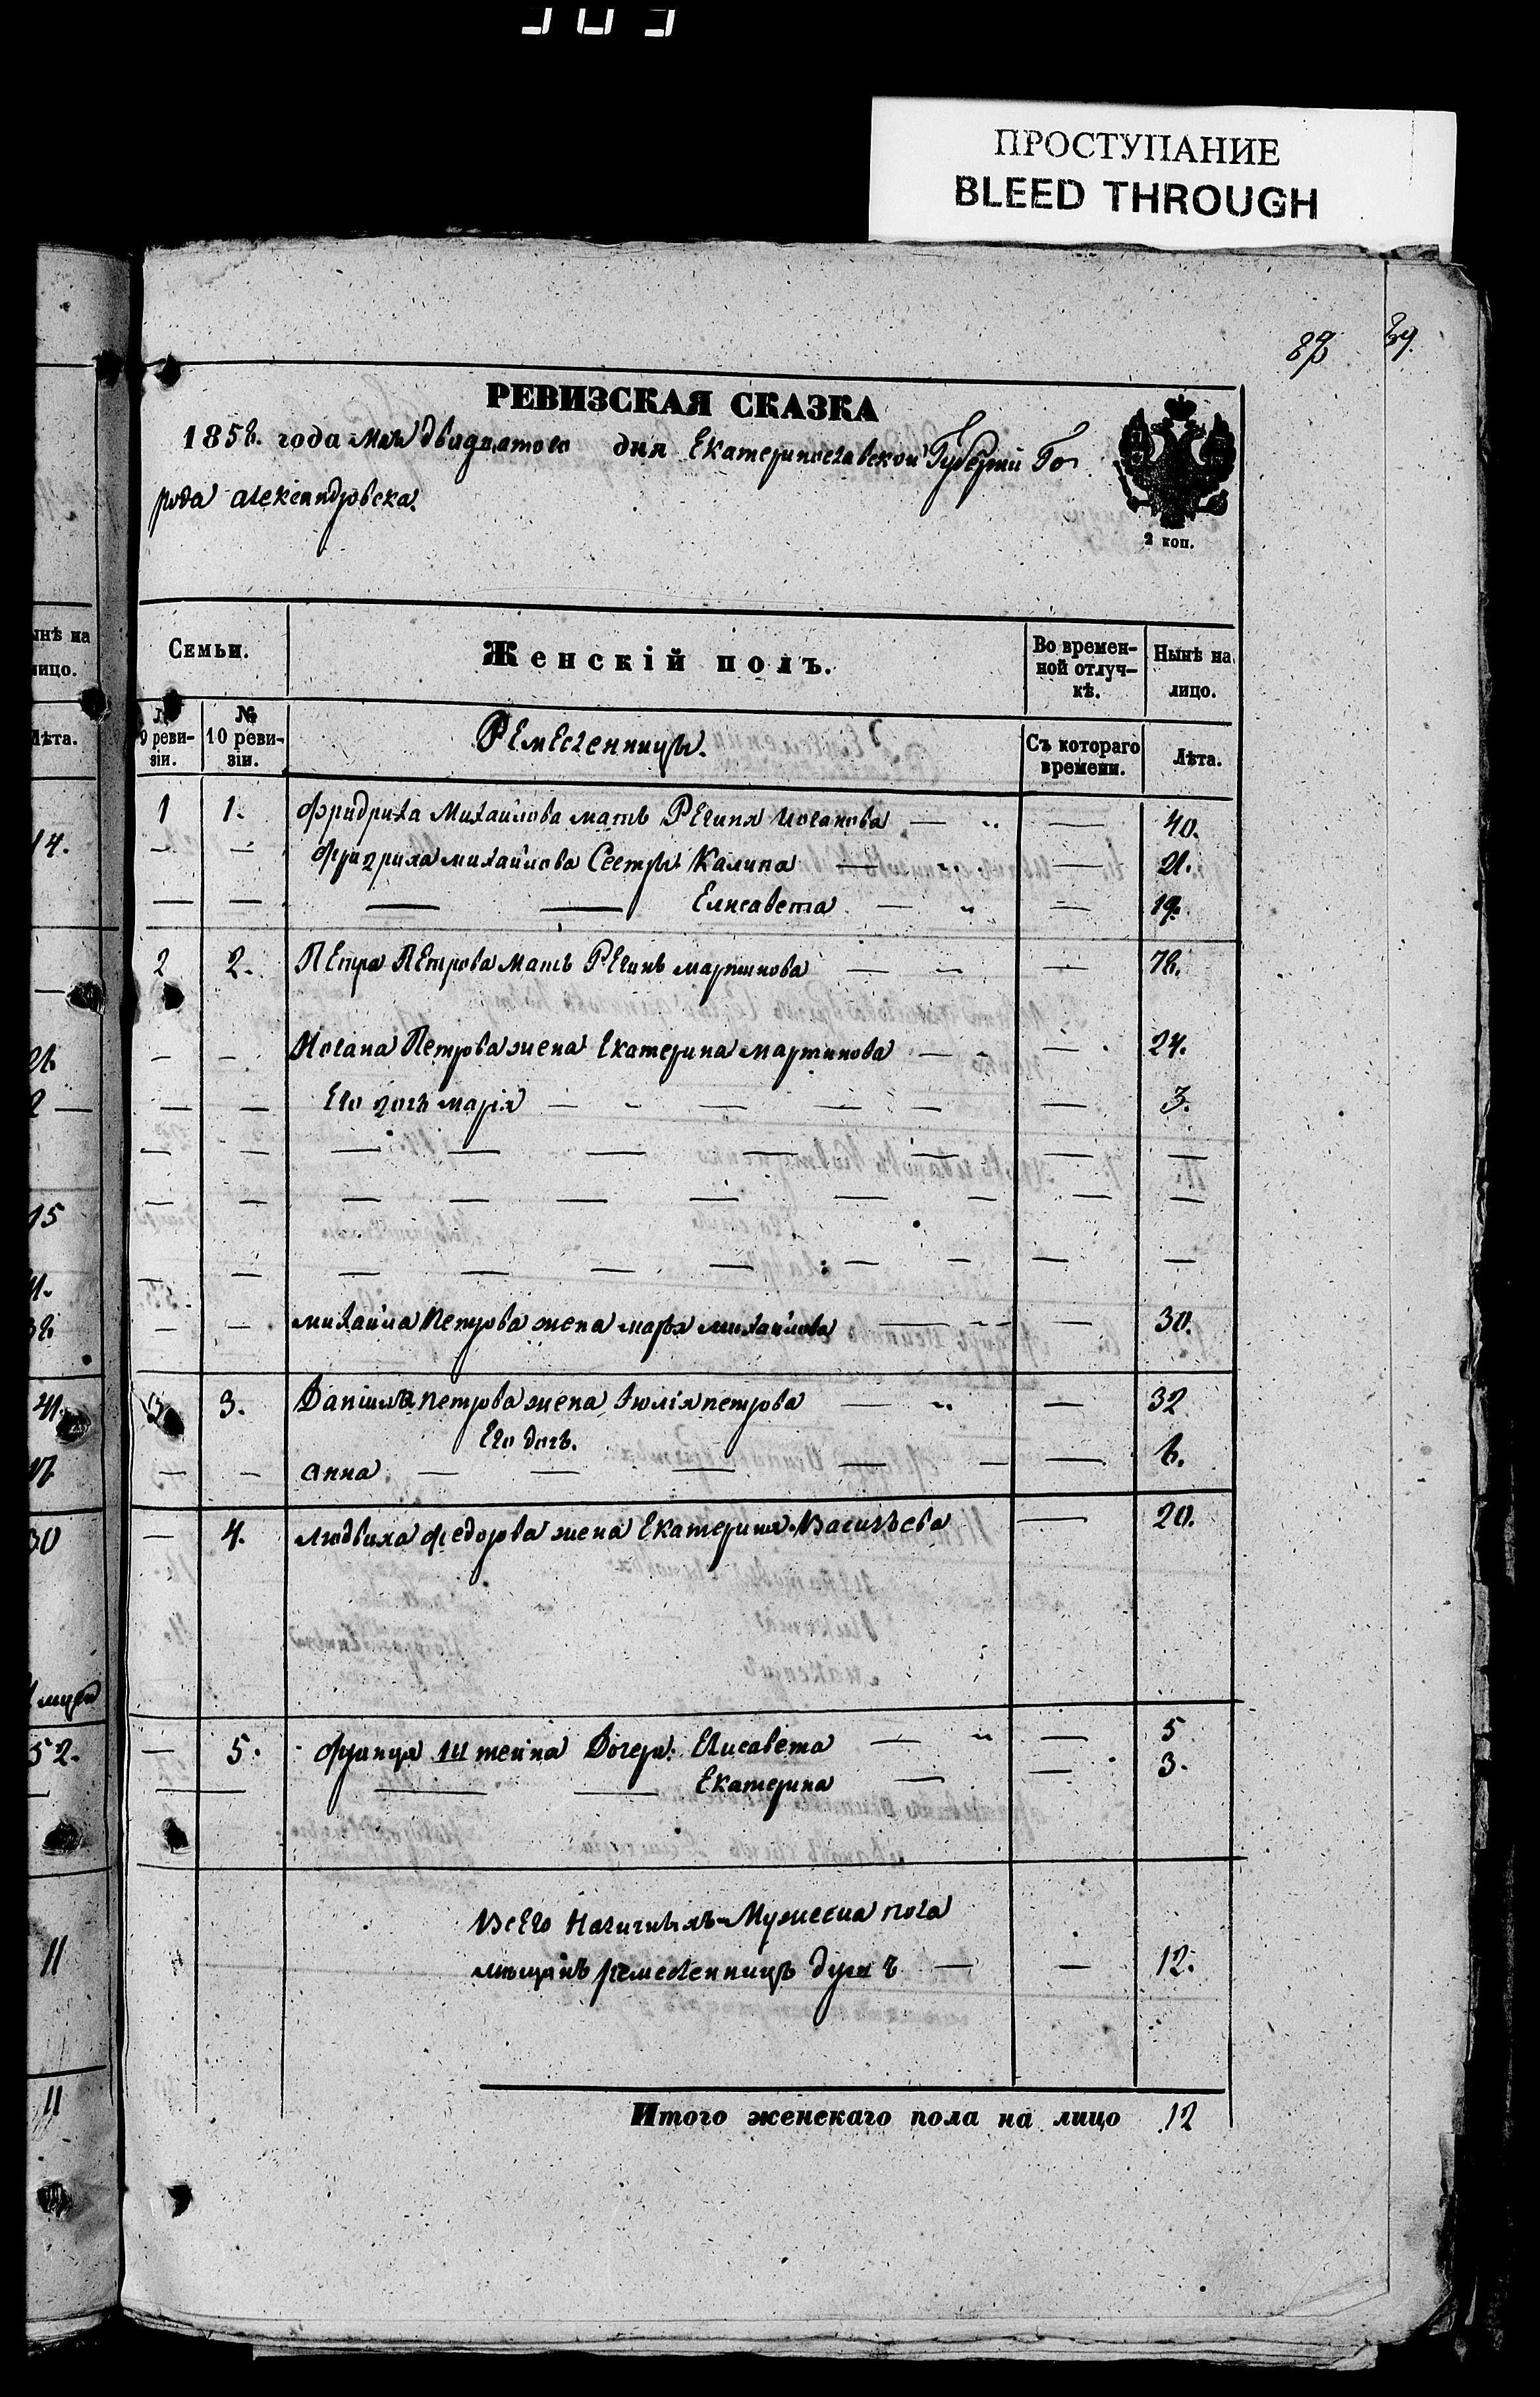 ПРОСТУПАНИЕ
BLEED THROUGH
87
РЕВИЗСКАЯ СКАЗКА
1858. года мая двадцатого дня Екатеринославской Губерніи Го
рода александровска.
2 коп.
Семьи.
Женскій полъ.
Во времен-
ной отлуч-
кѣ.
Нынѣ на
лицо.
№
9 реви-
зіи.
№
10 реви-
зіи.
Ремесленницы.
Съ котораго
времени.
Лѣта.
1 1. Фридриха Михайлова мать Регина Иоганова — — 40.
— — Фридриха михайлова Сестры Калина — — 21.
— — — — Елисавета — — 19.
2 2. Петра Петрова мать Регинъ мартинова — — 78.
— — Иогана Петрова жена Екатерина мартинова — — 24.
— — Его дочь марія — — — — — — 3.
михайла Петрова жена марья михайлова — — 30.
3 3. Даніила петрова жена Июлія петрова — — 32
Его дочь.
— — анна — — — — — — 6.
— 4. людвиха федорова жена Екатерина Васильева — 20.
— 5. франца Штейна Дочери: Елисавета — — 5
— — — — Екатерина — — 3.
Всего Наличныхъ Мужеска пола
мѣщанъ ремесленницъ душъ — — 12.
Итого женскаго пола на лицо 12
ынѣ на
лицо.
Лѣта.
14.
2
15
41.
30
52.
11
11